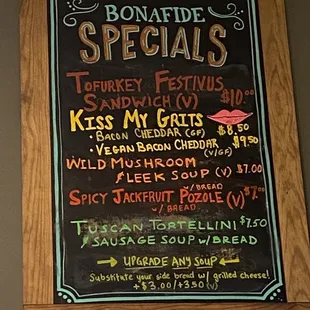 BONAFIDE
SPECIALS
TOFURKEY FESTIVUS
SANDWICH (V) $10.00
KISS MY GRITS
• BACON CHEDDAR (GF) $8.50
• VEGAN BACON CHEDDAR $9.50
(V/GF)
WILD MUSHROOM
& LEEK SOUP (V) $7.00
W/ BREAD
SPICY JACKFRUIT POZOLE (V) $7.00
W/ BREAD
TUSCAN TORTELLINI $7.50
& SAUSAGE SOUP W/BREAD
→ UPGRADE ANY SOUP ←
Substitute your side bread w/ grilled cheese!
+$3.00/+3.50 (V)